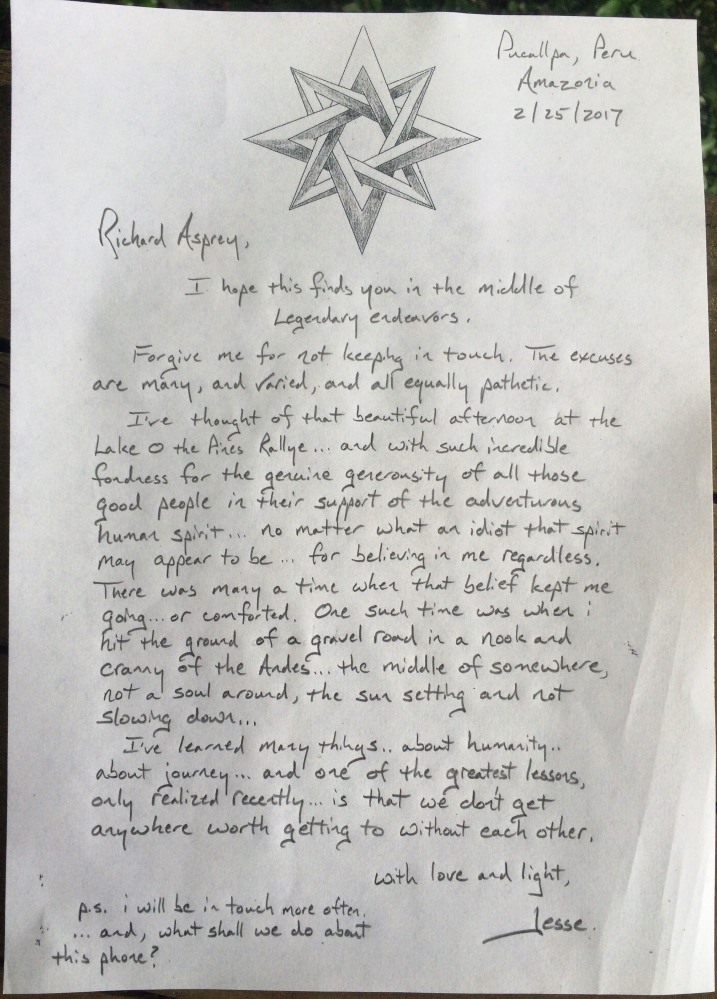 Pucallpa, Peru
Amazonia
2/25/2017
Richard Asprey,
I hope this finds you in the middle of
Legendary endeavors.
Forgive me for not keeping in touch. The excuses
are many, and varied, and all equally pathetic.
I've thought of that beautiful afternoon at the
Lake O the Pines Rallye... and with such incredible
fondness for the genuine generousity of all those
good people in their support of the adventurous
human spirit... no matter what an idiot that spirit
may appear to be... for believing in me regardless.
There was many a time when that belief kept me
going... or comforted. One such time was when i
hit the ground of a gravel road in a nook and
cranny of the Andes... the middle of somewhere,
not a soul around, the sun setting and not
slowing down...
I've learned many things.. about humanity..
about journey... and one of the greatest lessons,
only realized recently... is that we don't get
anywhere worth getting to without each other.
with love and light,
Jesse.
p.s. i will be in touch more often.
... and, what shall we do about
this phone?